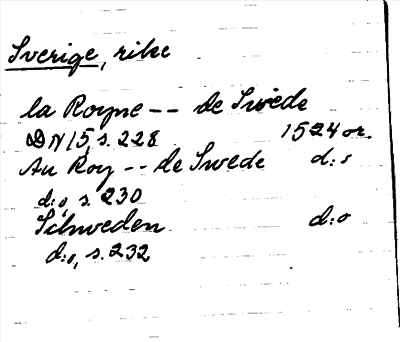 Sverige, rike
la Royne -- de Swede
DN 15, s. 228 1524 or.
Au Roy -- de Swede d:o
d:o, s. 230
Schweden d:o
d:o, s. 232